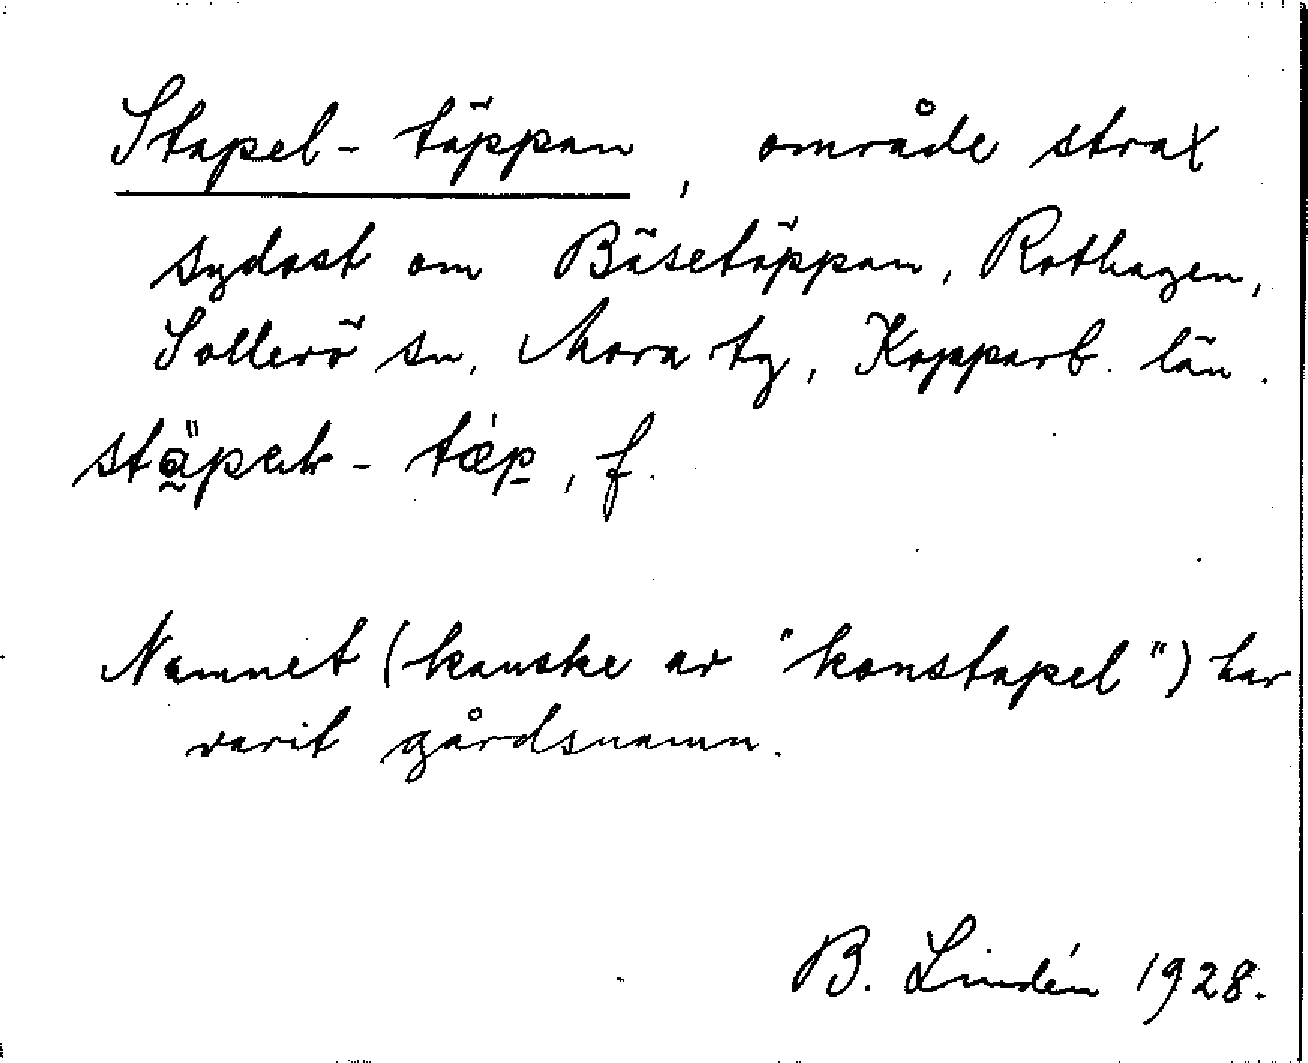 Stapel-täppan, område strax
sydost om Bäsetäppan, Rothagen,
Sollerö sn, Mora tg, Kopparb. län.
- tæp, f.
Namnet (kanske av "konstapel") har
varit gårdsnamn.
B. Lindén 1928.